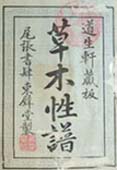 道生軒藏板
草木性譜
尾張書肆東壁堂製